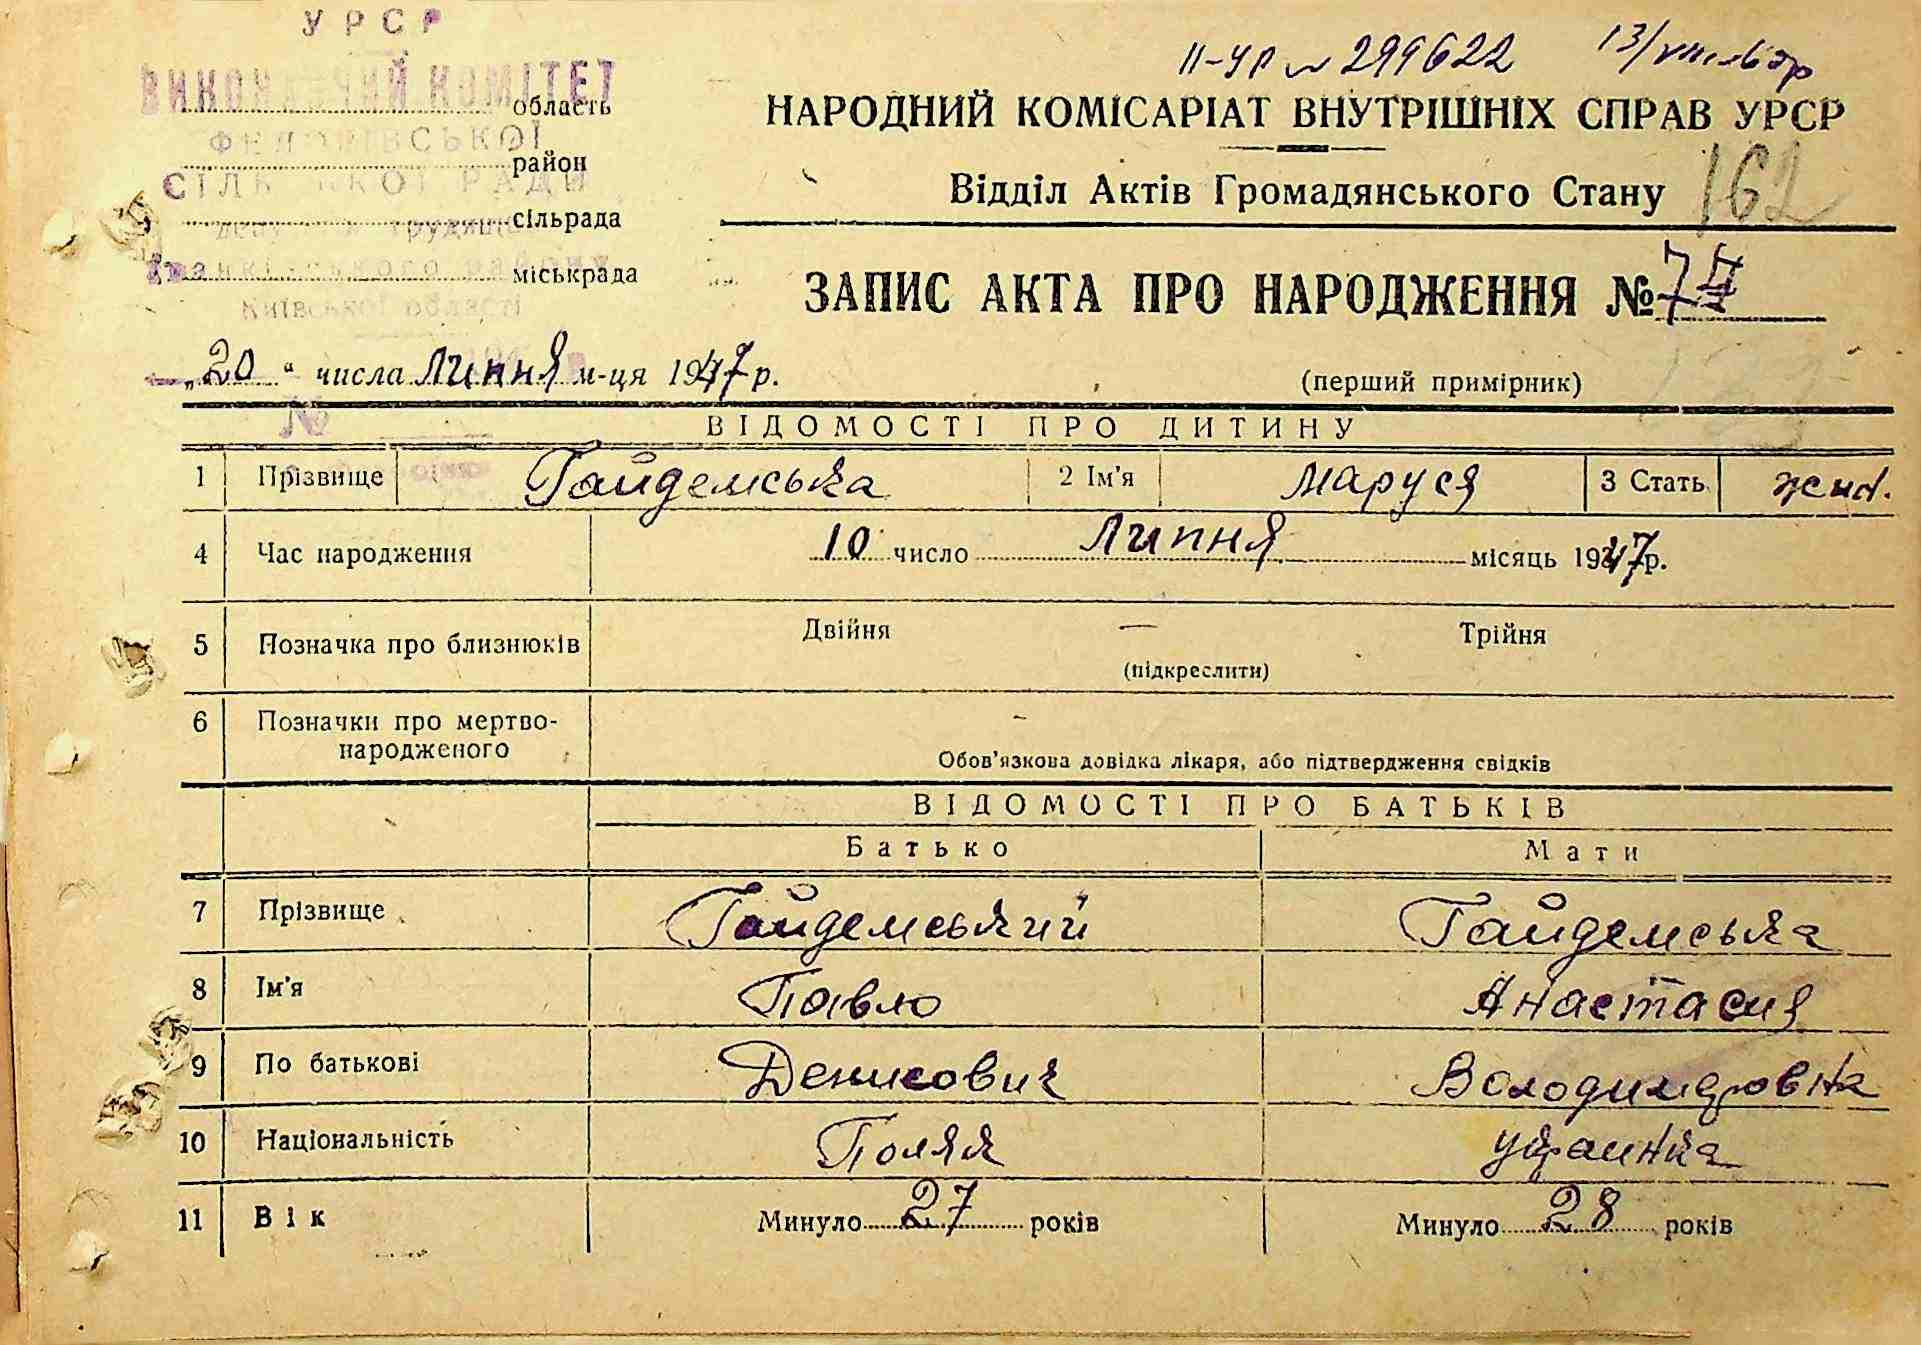 УРСР
ВИКОНАВЧИЙ КОМІТЕТ
область
ФЕДОРІВСЬКОЇ
район
СІЛЬСЬКОЇ РАДИ
сільрада
трудящих
Іванківського району
міськрада
Київської області
II-УР № 299622
НАРОДНИЙ КОМІСАРІАТ ВНУТРІШНІХ СПРАВ УРСР
Відділ Актів Громадянського Стану
162
ЗАПИС АКТА ПРО НАРОДЖЕННЯ №
„20“ числа Липня м-ця 1947 р.
(перший примірник)
№
ВІДОМОСТІ ПРО ДИТИНУ
1 Прізвище Гайдемська 2 Ім'я Маруся 3 Стать жін.
4 Час народження 10 число Липня місяць 1947 р.
5 Позначка про близнюків Двійня — Трійня
(підкреслити)
6 Позначки про мертво-
народженого
Обов'язкова довідка лікаря, або підтвердження свідків
ВІДОМОСТІ ПРО БАТЬКІВ
Батько Мати
7 Прізвище Гайдемський Гайдемська
8 Ім'я Павло Анастасия
9 По батькові Денисович Володимировна
10 Національність Поляк украинка
11 Вік Минуло 27 років Минуло 28 років